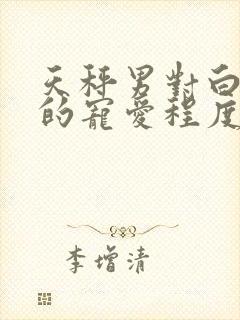 天秤男對白
的寵愛程度
李增清